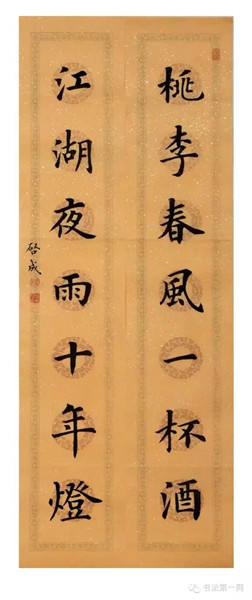 桃李春風一杯酒
江湖夜雨十年燈
啓成
书法第一网